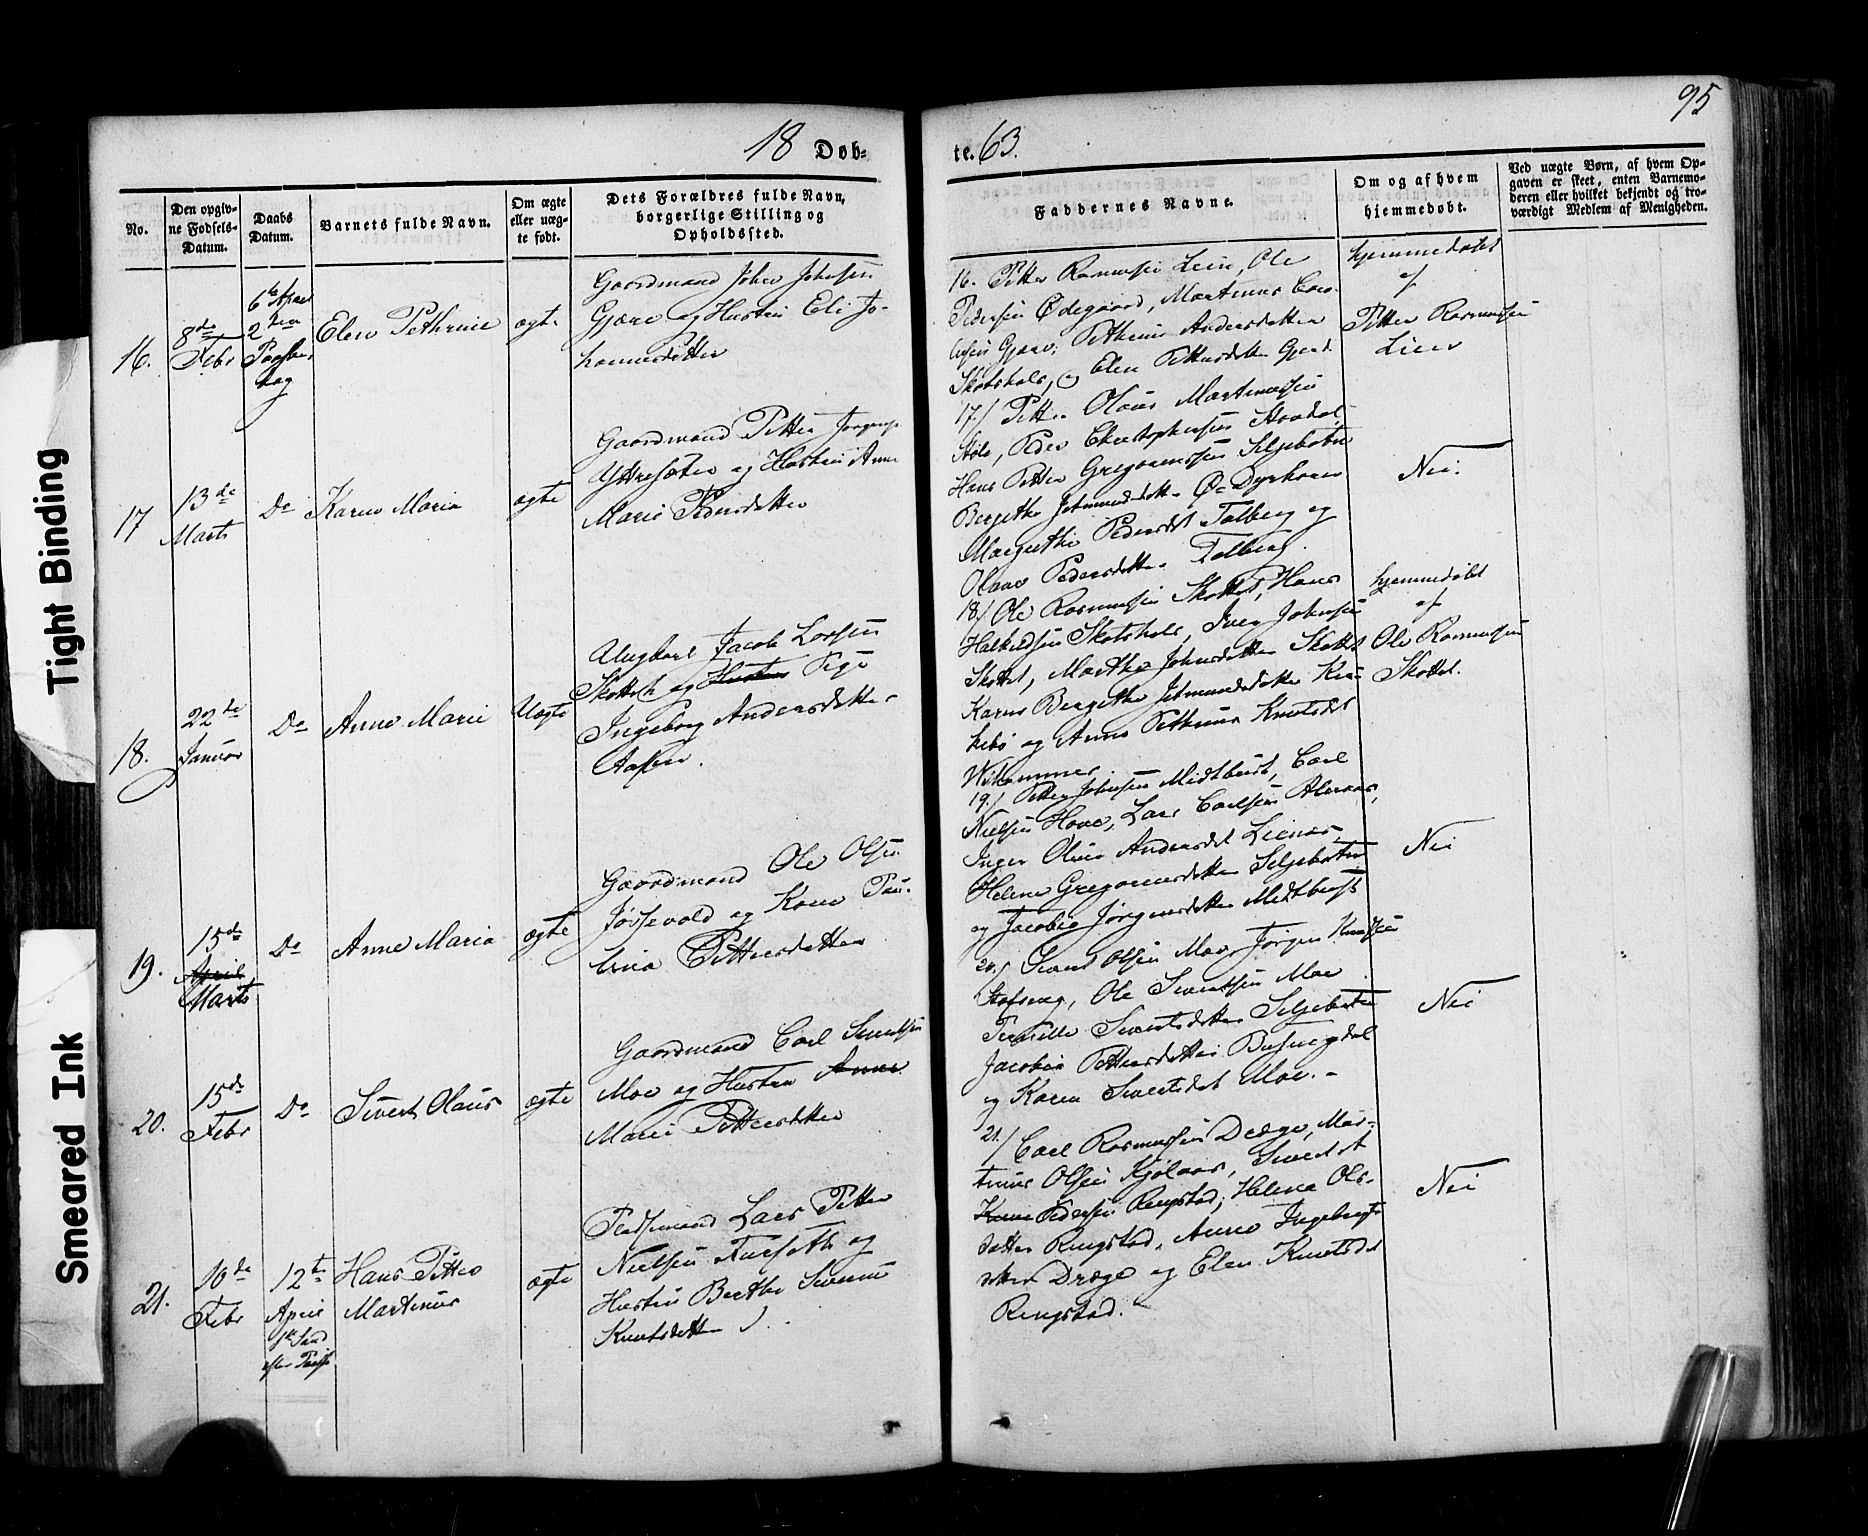 95
18 Døb=
te. 63.
No.
Den opgiv-
ne Fødsels-
Datum.
Daabs
Datum.
Barnets fulde Navn.
Om ægte
eller uæg-
te født.
Dets Forældres fulde Navn,
borgerlige Stilling og
Opholdssted.
Faddernes Navne.
Om og af hvem
hjemmedøbt.
Ved uægte Børn, af hvem Op-
gaven er skeet, enten Barnemo-
deren eller hvilket bekjendt og tro-
værdigt Medlem af Menigheden.
16.
8de
Febr
6te April
2den
Paaske
dag
Elen Pethrine
ægte
Gaardmand John Johnsen
Gjære og Hustru Eli Jo-
hannesdatter
16. Petter Rasmusen Lien, Ole
Pedersen Ødegaard, Martinus
Gjære, Pethrine Andersdatter
Skotshals, og Elen Pettersdatter
hjemmedøbt
af
Petter Rasmusen
Lien
17
13de
Marts
Do
Karen Maria
ægte
Gaardmand Petter
Yttresæter og Hustru Anne
Marie Pedersdatter
17./ Petter Olaus Martinussen
Peder Christophersen
Hans Petter Gregoriussen Seljebotn
Bergethe Jetmundsdatter
Margrethe Pedersdt Talberg og
Olave Pedersdatter Talberg.
Nei.
18.
22de
Januar
Do
Anne Marie
Uægte
Ungkarl Jacob Larsen
Skottet og Hustru Pige
Ingeborg Andersdatter
Aasen.
18/ Ole Rasmusen Skottet, Hans
Halkildsen Skotshals, Iver Johnsen
Skottet, Marthe Johnsdatter Skottet
Karen Bergethe Jetmundsdatter
og Anne Pethrine Knutsdt
hjemmedøbt
af
Ole Rasmusen
Skottet.
19.
15de
April
Marts
Do
Anne Maria
ægte
Gaardmand Ole Olsen
og Kone
Pettersdatter
19./ Petter Johnsen Midtbust, Carl
Nielsen Hove, Lars Carlsen
Inger Oline Andersdt Lienes,
Helene Gregoriusdatter Seljebotn
og Jacobia Jörgensdatter Midtbust
Nei
20.
15de
Febr
Do
Sivert Olaus
ægte
Gaardmand Carl Sivertsen
Moe og Hustru Anne
Marie Pettersdatter
20./ Sivert Olsen Moe, Jörgen Knutsen
Ole Sivertsen Moe
Pernille Sivertsdatter Seljebotn
Jacobia Pettersdatter
og Karen Sivertsdt Moe. -
Nei
21.
10de
Febr
12te
April
1ste Sønd
efter Paaske
Hans Petter
Martinus
ægte
Pladsmand Lars Petter
Nielsen Furseth og
Hustru Berthe
Knutsdatter
21./ Carl Rasmussen Dræge, Mar-
tinus Olsen Kjølaas, Sivert
Knut Pedersen Ringstad, Helene Ols-
datter Ringstad, Anne Ingebrigts
datter Dræge og Elen Knutsdt
Ringstad.
Nei
Tight Binding
Smeared Ink